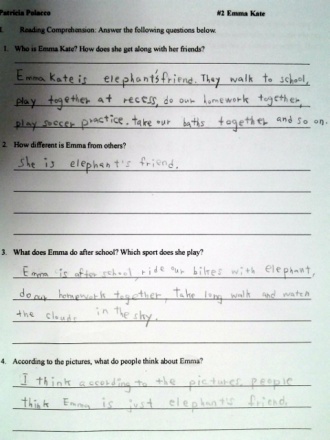 Patricia Polacco #2 Emma Kate
I. Reading Comprehension: Answer the following questions below.
1. Who is Emma Kate? How does she get along with her friends?
Emma Kate is elephant's friend. They walk to school,
play together at recess, do our homework together,
play soccer practice. take our baths together and so on.
2. How different is Emma from others?
She is elephant's friend.
3. What does Emma do after school? Which sport does she play?
Emma is after school, ride our bikes with elephant,
do our homework together, take long walk and watch
the clouds in the sky.
4. According to the pictures, what do people think about Emma?
I think according to the pictures people
think Emma is just elephant's friend.